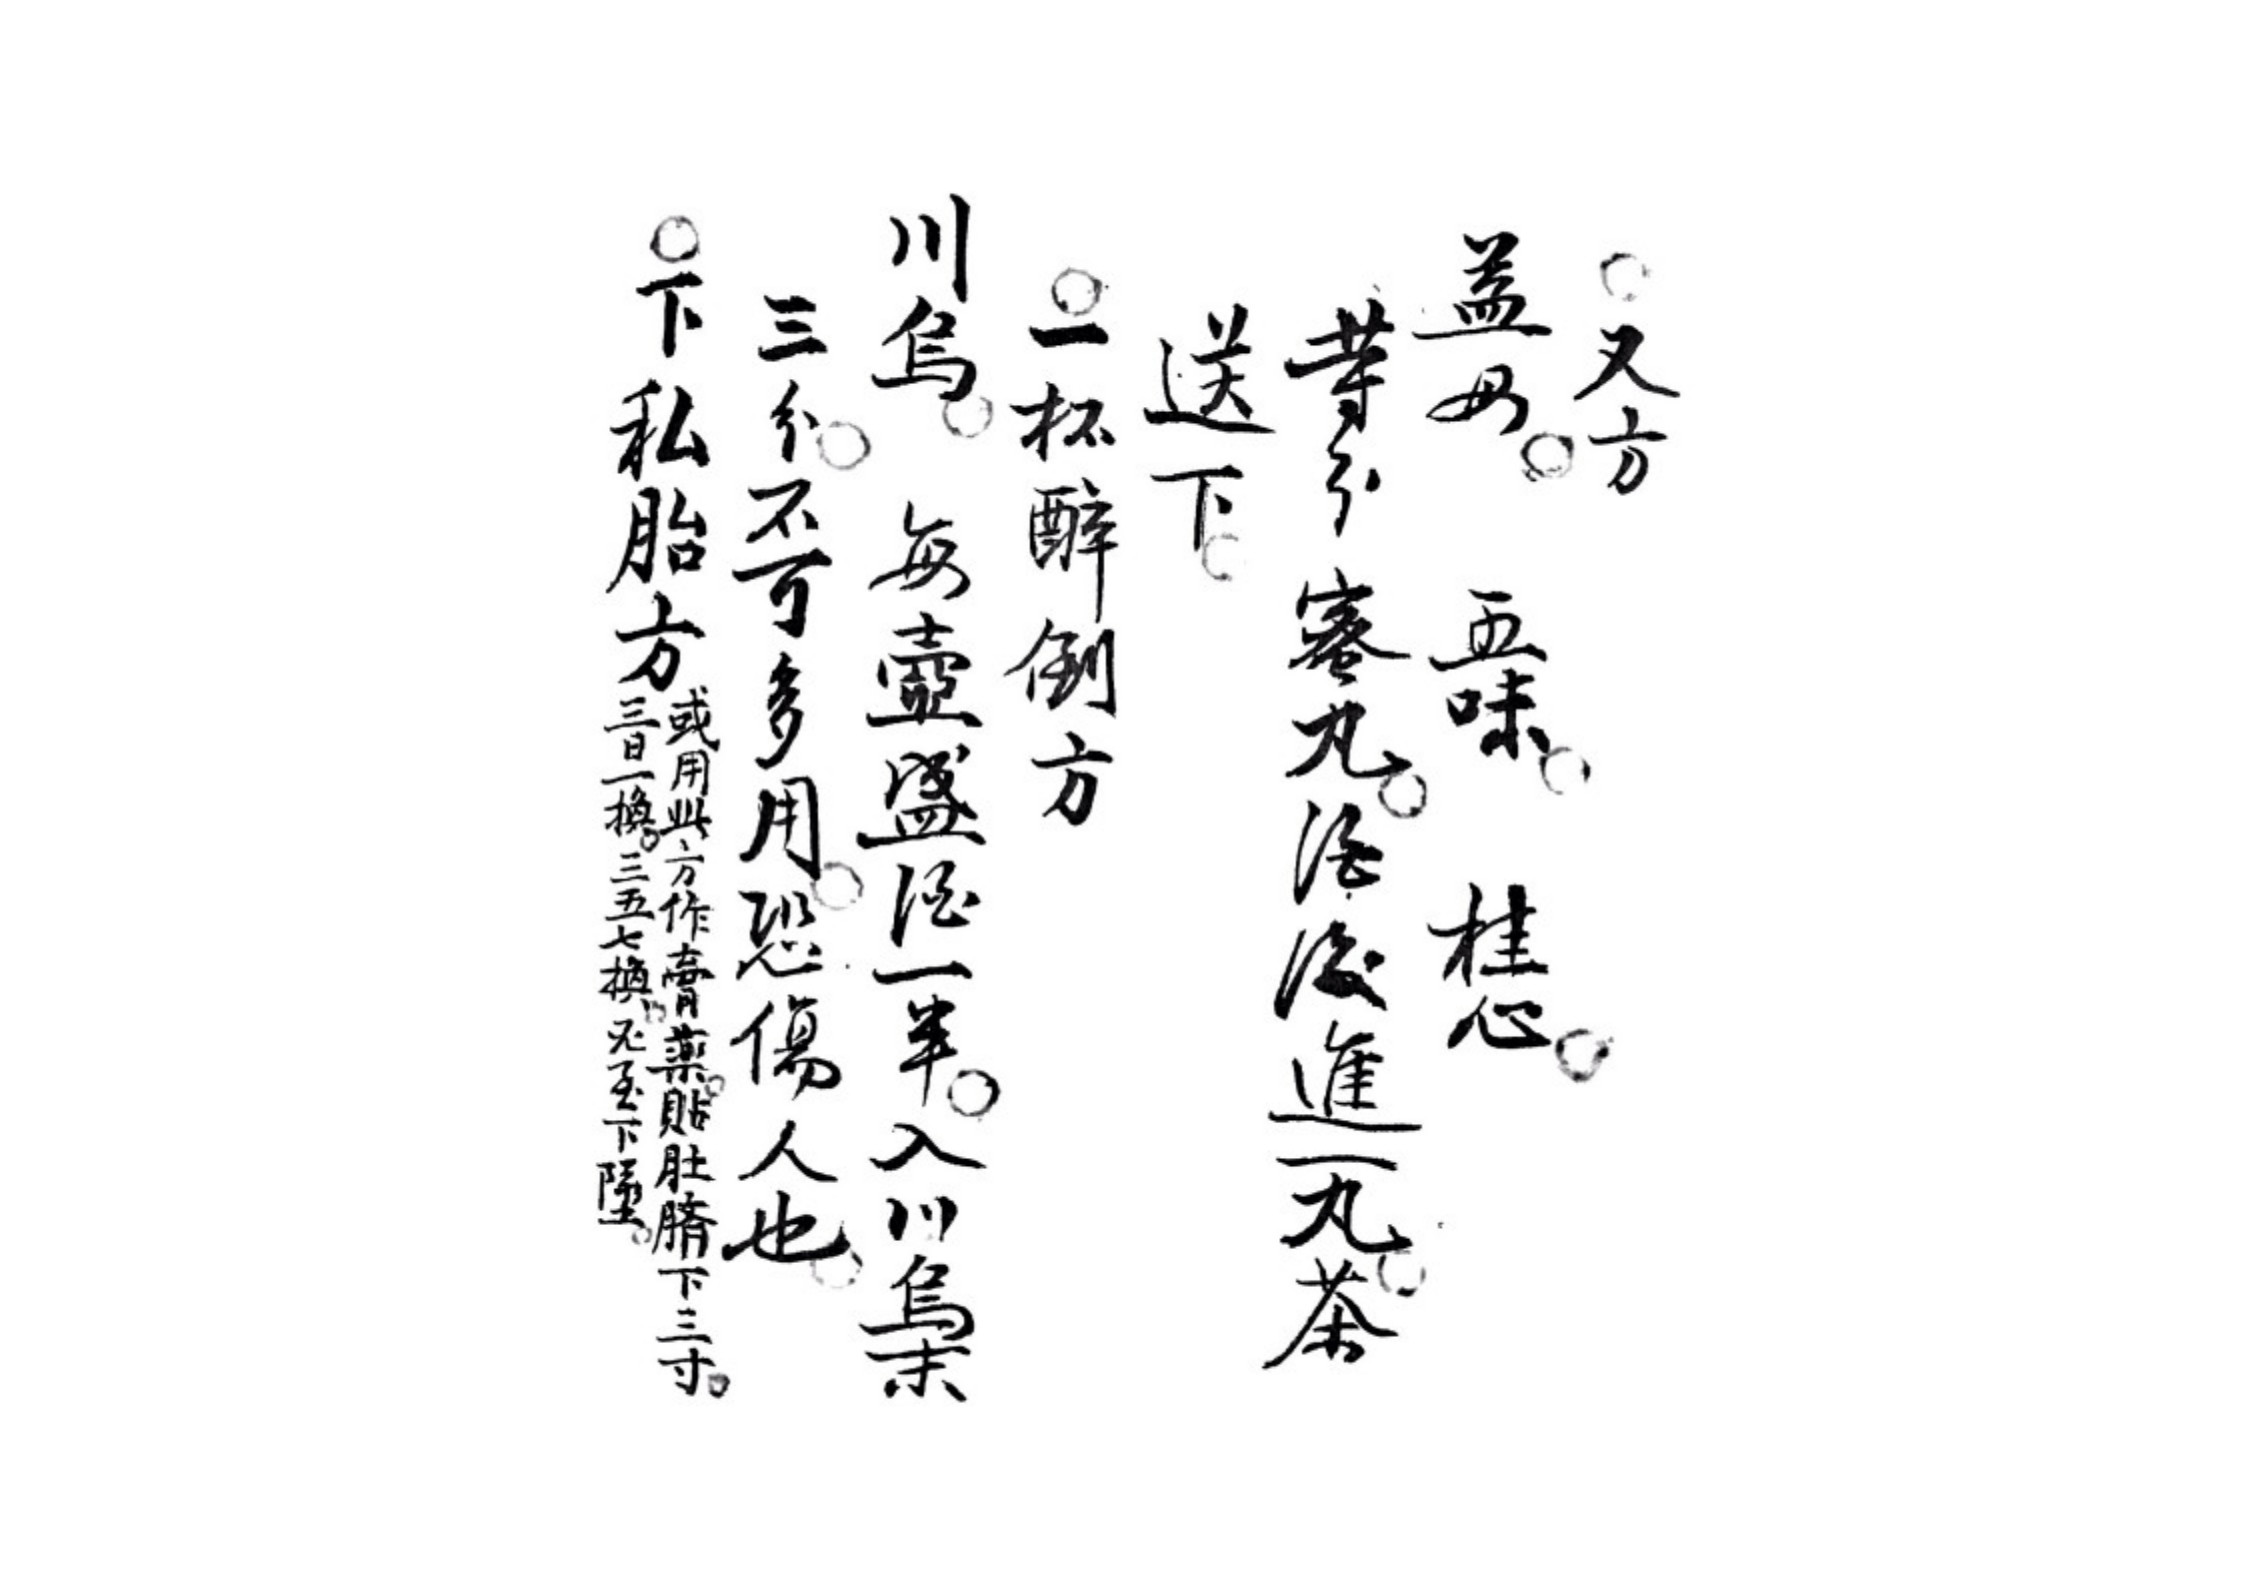 ○又方
益母。 五味。 桂心。
等分 蜜丸。酒後進一丸。茶
送下。
○一杯醉倒方
川烏。 每壺盛酒一半。入川烏末
三分。不可多用。恐傷人也。
○下私胎方
或用此方作膏藥。貼肚臍下三寸。
三日一換。三五七換。兒至下墜。